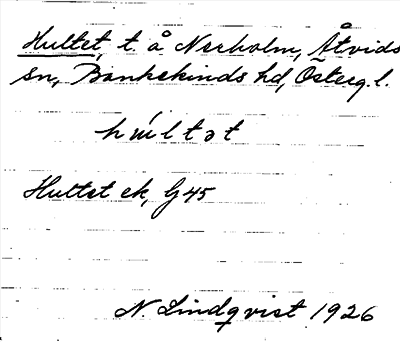 Hultet, t. å Nerholm, Åtvids
sn, Bankekinds hd, Österg. l.
hult ət
Hultet ek, G 45
N. Lindqvist 1926